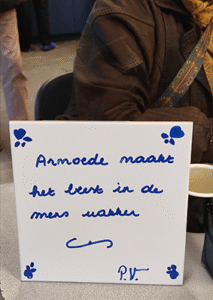 Armoede maakt
het beest in de
mens wakker
P.V.